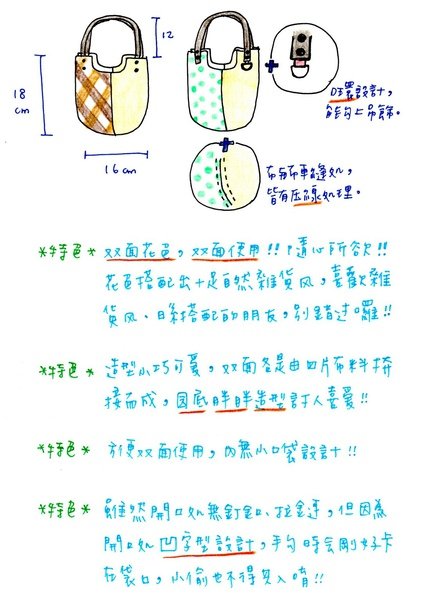 12
18
cm
16cm
吐環設計，
能勾上吊飾。
布與布車縫処，
皆有压線処理。
*特色* 双面花色，双面使用!!隨心所欲!!
花色搭配出十足自然雜貨风，喜歡雜
貨风、日系搭配的朋友，別錯过囉!!
*特色* 造型小巧可愛，双面各是由四片布料拼
接而成，圆底胖胖造型討人喜爱!!
*特色* 方便双面使用，內無小口袋設計!!
*特色* 雖然開口処無釘釦、拉鍊，但因為
開口処凹字型設計，手勾時会剛好卡
在袋口，小偷也不得其入唷!!